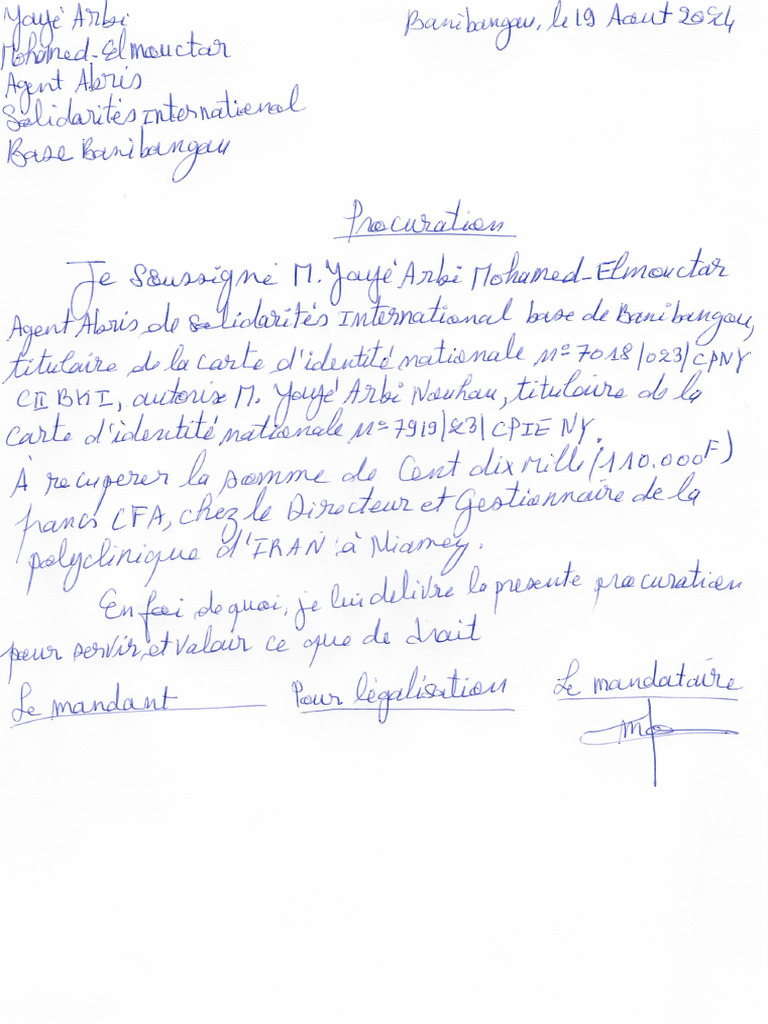 Yayé Arbi
Banibangou, le 19 Aout 2024
Mohamed-Elmouctar
Agent Abris
Solidarités International
Base Banibangou
Procuration
Je Soussigné M. Yayé Arbi Mohamed-Elmouctar
Agent Abris de Solidarités International base de Banibangou,
titulaire de la carte d'identité nationale n° 7018/023/CPNY
CII BKI, autorise M. Yayé Arbi Nouhou, titulaire de la
carte d'identité nationale n° 7919/23/CPIE NY.
À recuperer la somme de Cent dix mille (110.000F)
francs CFA, chez le Directeur et Gestionnaire de la
polyclinique d'IRAN à Niamey.
En foi de quoi, je lui delivre la presente procuration
pour servir, et valoir ce que de droit
Le mandant Pour légalisation Le mandataire